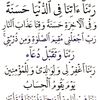 رَبَّنَا ءَاتِنَا فِي الدُّنْيَا حَسَنَةً
وَفِي الْآخِرَةِ حَسَنَةً وَقِنَا عَذَابَ النَّارِ
رَبِّ اجْعَلْنِي مُقِيمَ الصَّلَوٰةِ وَمِن ذُرِّيَّتِي
رَبَّنَا وَتَقَبَّلْ دُعَاءِ
رَبَّنَا اغْفِرْ لِي وَلِوَالِدَيَّ وَلِلْمُؤْمِنِينَ
يَوْمَ يَقُومُ الْحِسَابُ